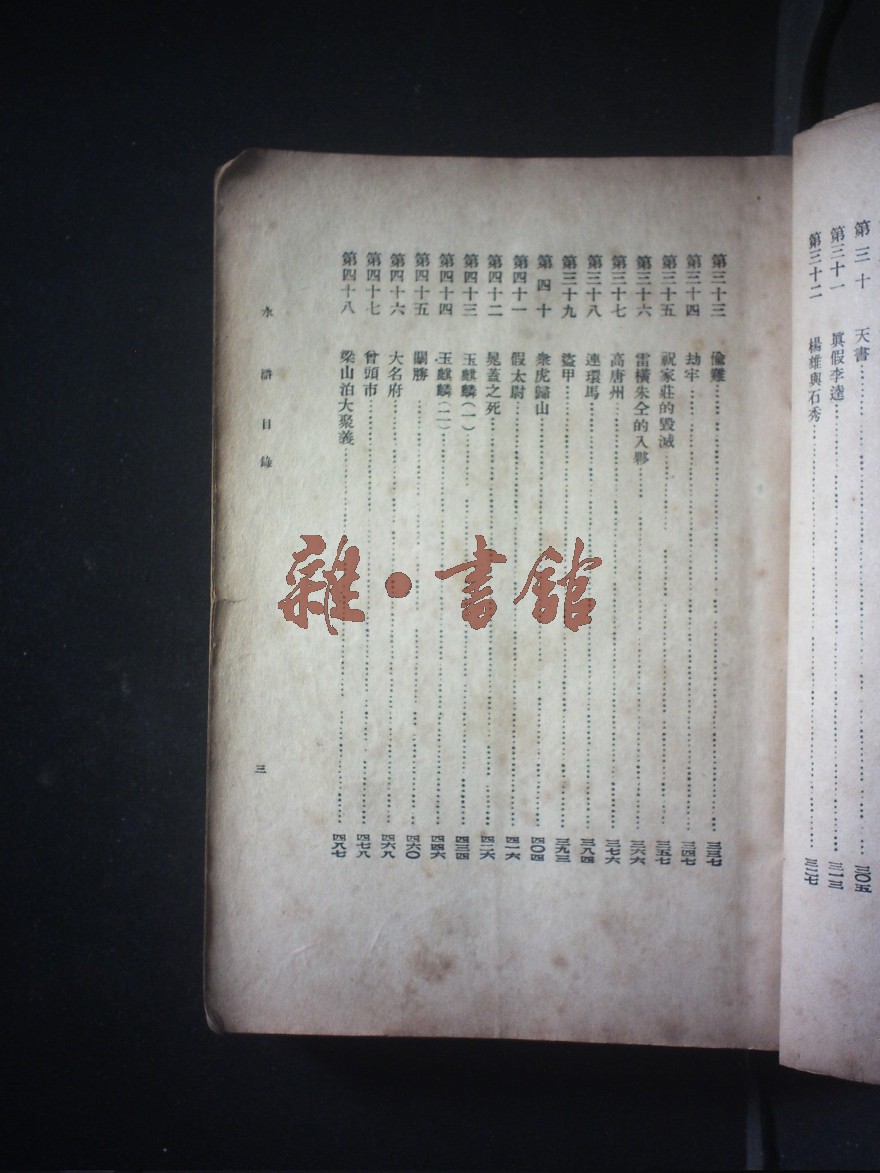 第三十　天書　三〇五
第三十一　眞假李逵　三一三
第三十二　楊雄與石秀　三二七
第三十三　偷雞　三三七
第三十四　劫牢　三四七
第三十五　祝家莊的毀滅　三五七
第三十六　雷橫朱仝的入夥　三六六
第三十七　高唐州　三七六
第三十八　連環馬　三八四
第三十九　盜甲　三九三
第四十　衆虎歸山　四〇四
第四十一　假太尉　四一六
第四十二　晁蓋之死　四二六
第四十三　玉麒麟（一）　四三四
第四十四　玉麒麟（二）　四四六
第四十五　關勝　四六〇
第四十六　大名府　四六八
第四十七　曾頭市　四七八
第四十八　梁山泊大聚義　四八七
水滸目錄　三
雜·書館